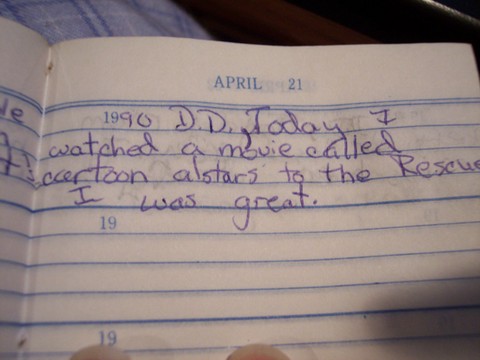 APRIL 21
1990 D.D. Today I
watched a movie called
cartoon alstars to the Rescue
I was great.
19
19